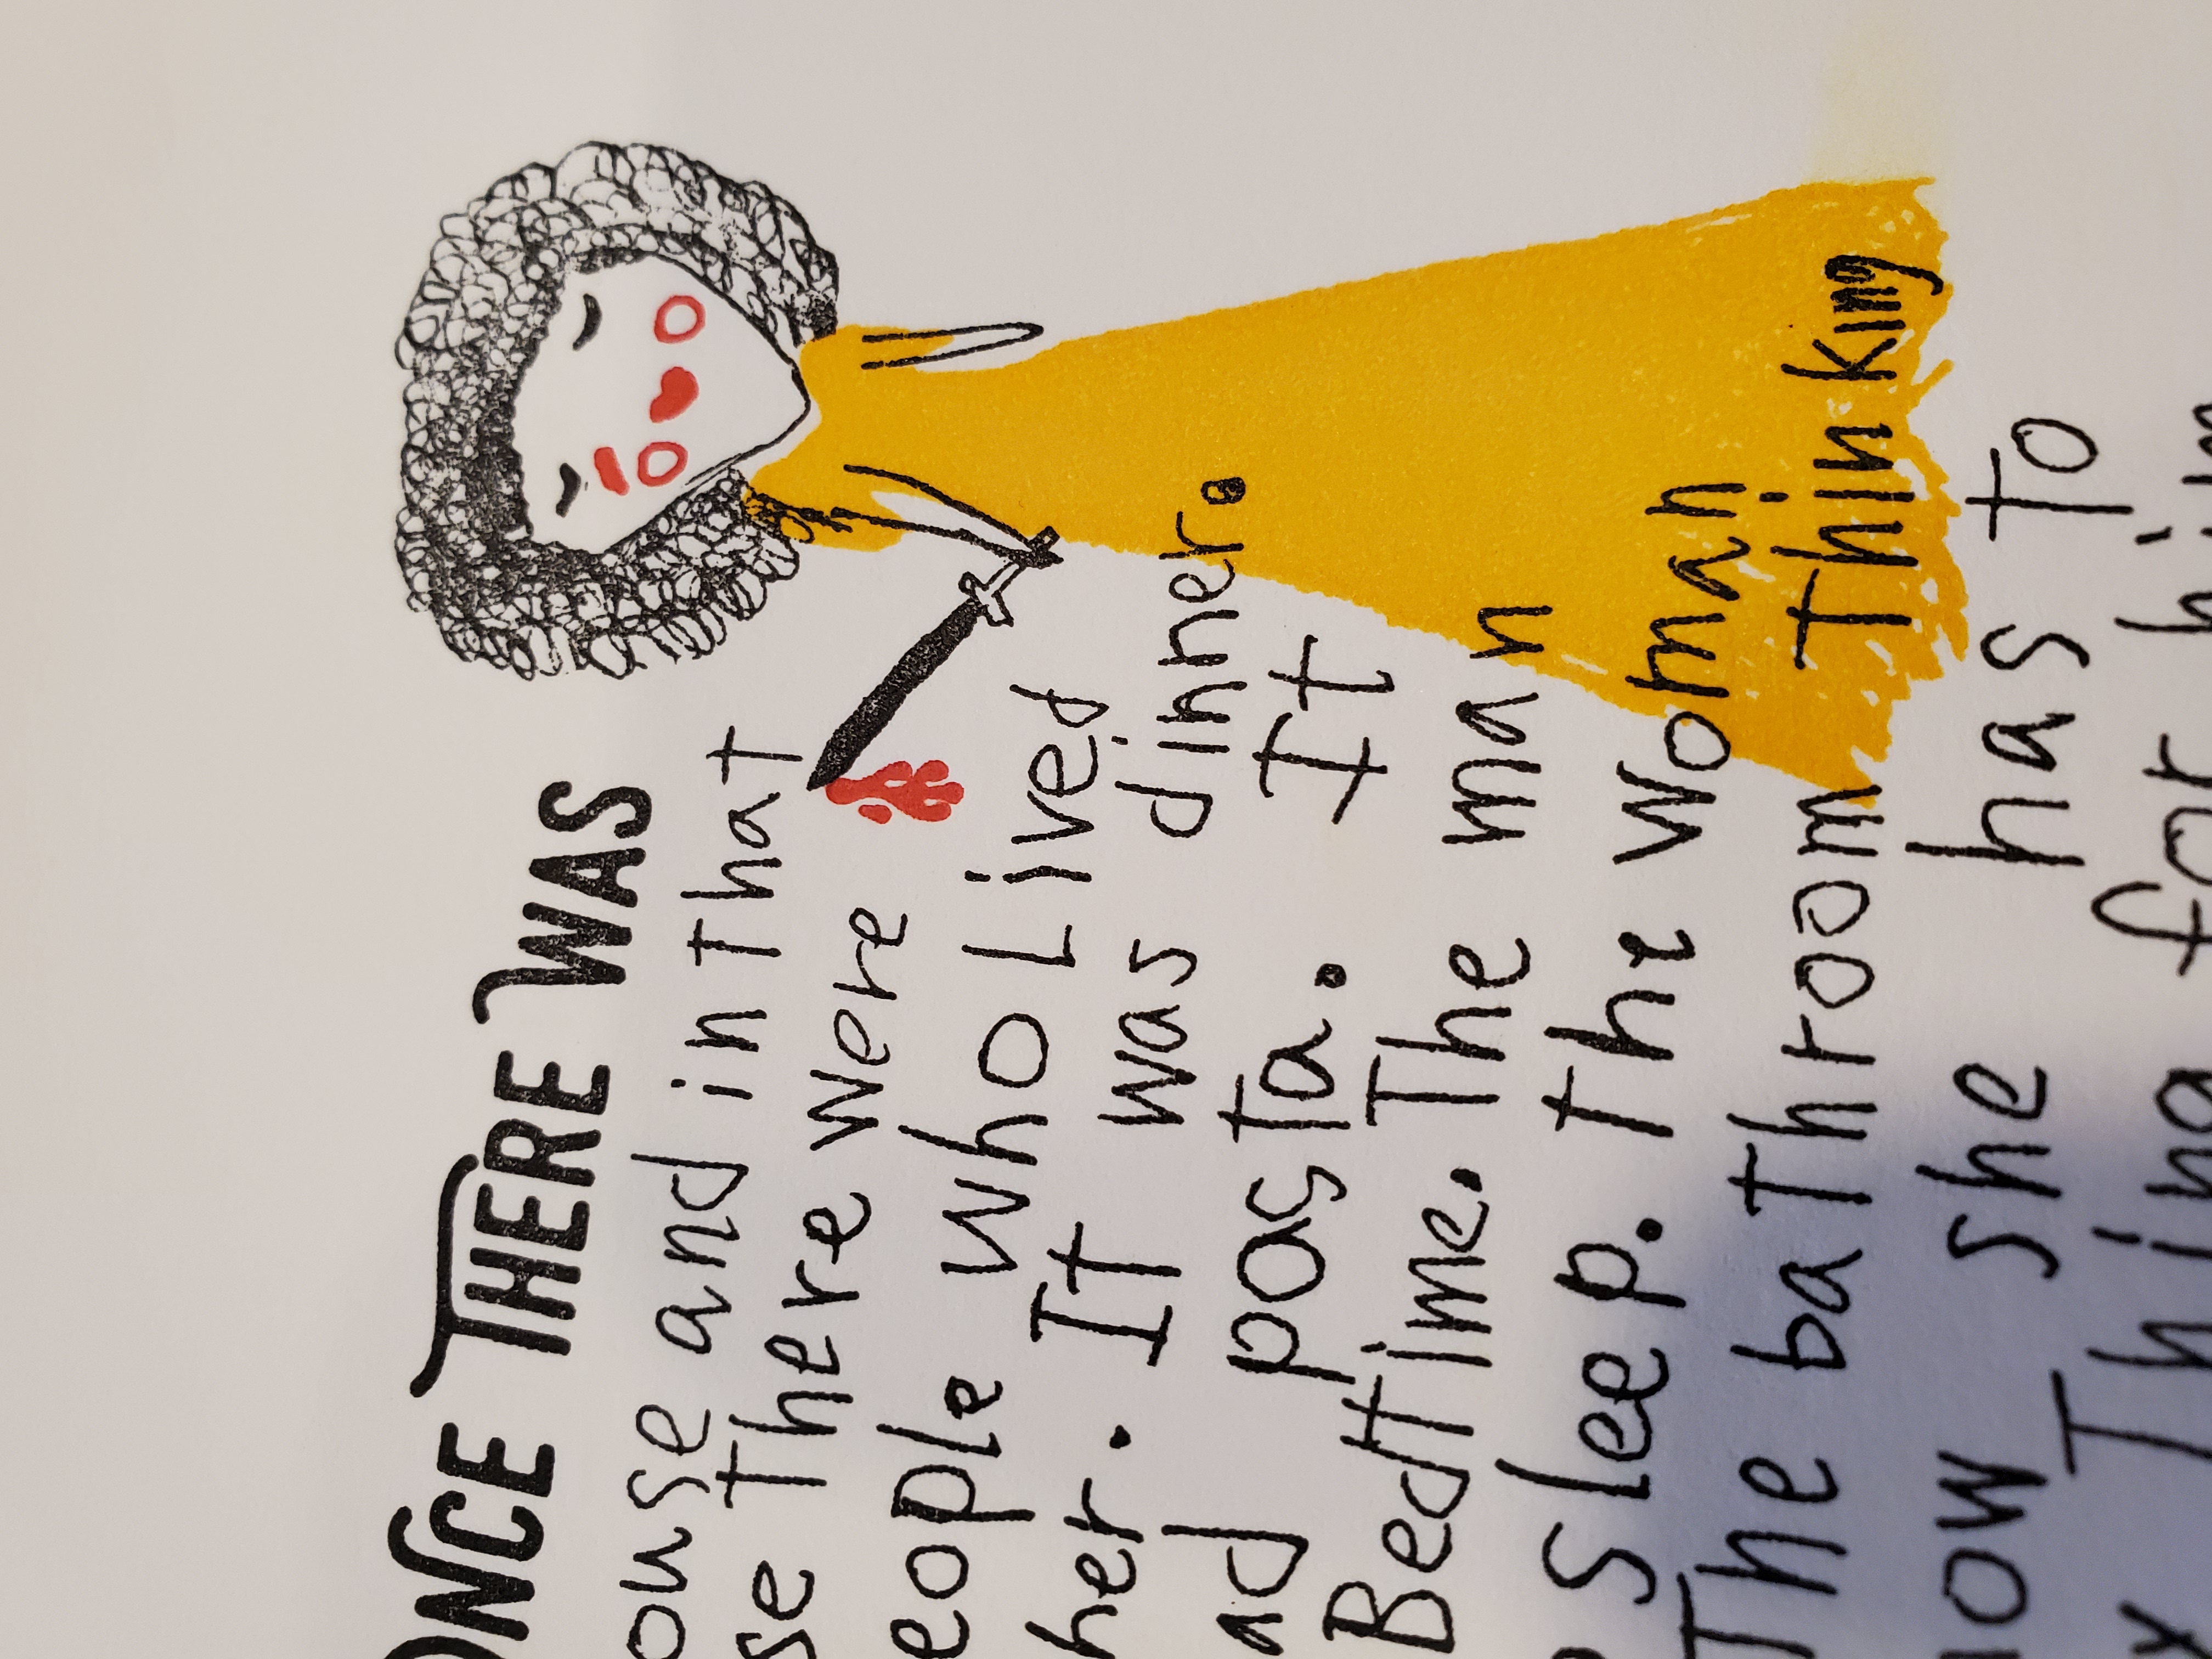 ONCE THERE WAS
ouse and in that
se there were
eople who Lived
her. It was dinner.
ad pasta. It
Bedtime. The man
Sleep. the woman
The bathroom Thinking
now she has to
y Thing for him